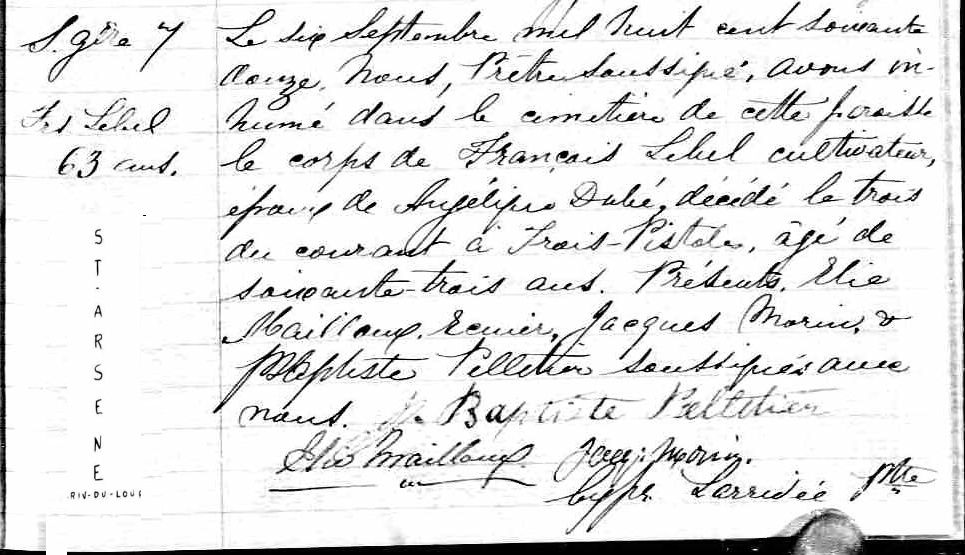 S. gire 7
Frs Lebel
63 ans.
Le six Septembre mil huit cent soixante
douze, Nous, Prêtre soussigné, avons in-
humé dans le cimetière de cette paroisse
le corps de François Lebel cultivateur,
époux de Angélique Dubé, décédé le trois
du courant à Trois-Pistoles, âgé de
soixante-trois ans. Présents, Elie
Mailloux, Ecuier, Jacques Morin, &
JBaptiste Pelletier soussignés avec
nous. Jn Baptiste Pelletier
Elie Mailloux. Jacq. Morin.
Cypr. Larrivée Ptre
ST-ARSENE
RIV-DU-LOUP